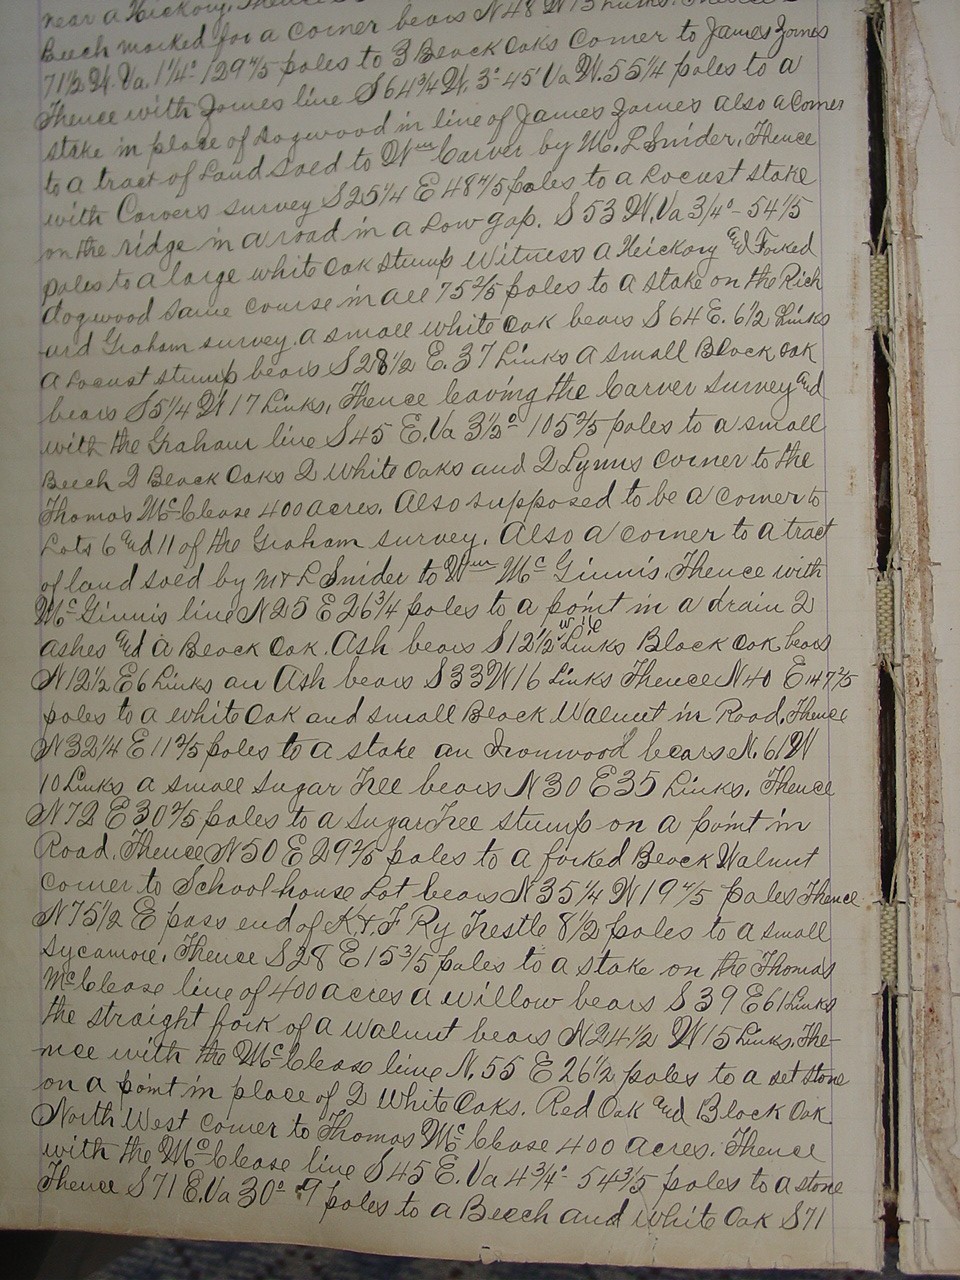 near a Hickory. Thence
Beech marked for a corner bears N48 W13 Links. Thence
71½ W. Va. 1¼° 129 4/5 poles to 3 Black Oaks Corner to James Jones
Thence with Jones line S64¾ W. 3°-45' Va W. 55¼ poles to a
stake in place of dogwood in line of James Jones also a Corner
to a tract of Land sold to Wm Carver by M. L Snider. Thence
with Carvers survey S25¼ E 48 4/5 poles to a Locust stake
on the ridge in a road in a Low gap. S 53 W. Va 3/4° - 54 1/5
poles to a large white Oak stump Witness a Hickory and Forked
dogwood same course in all 75 2/5 poles to a stake on the Rich
ard Graham survey. a small white Oak bears S64 E. 6½ Links
a Locust stump bears S28½ E. 37 Links a small Black oak
bears S5¼ W 17 Links. Thence leaving the Carver survey and
with the Graham line S45 E. Va 3½° 105 2/5 poles to a small
Beech 2 Black Oaks 2 White Oaks and 2 Lynns corner to the
Thomas McClease 400 acres. Also supposed to be a corner to
Lots 6 and 11 of the Graham survey. Also a corner to a tract
of land sold by M & L Snider to Wm McGinnis. Thence with
McGinnis line N25 E 26¾ poles to a point in a drain 2
ashes and a Black Oak. Ash bears S12½ W 10 Links Black Oak bears
N12½ E6 Links an Ash bears S33 W16 Links Thence N40 E 147 2/5
poles to a white Oak and small Black Walnut in Road. Thence
N32¼ E 11 2/5 poles to a stake an Ironwood bears N. 61 W
10 Links a small Sugar Tree bears N30 E35 Links. Thence
N72 E 30 2/5 poles to a Sugar Tree stump on a point in
Road. Thence N50 E 29 2/5 poles to a forked Black Walnut
corner to School house Lot bears N35¼ W19 4/5 poles Thence
N75½ E pass end of K & F Ry Trestle 8½ poles to a small
Sycamore. Thence S28 E 15 3/5 poles to a stake on the Thomas
McClease line of 400 acres a willow bears S39 E61 Links
the straight fork of a walnut bears N24½ W15 Links. The-
nce with the McClease line N. 55 E 26½ poles to a set stone
on a point in place of 2 White Oaks. Red Oak and Black Oak
North West corner to Thomas McClease 400 acres. Thence
with the McClease line S45 E. Va 4¾° 54 3/5 poles to a stone
Thence S71 E. Va 30° 9 poles to a Beech and White Oak S71